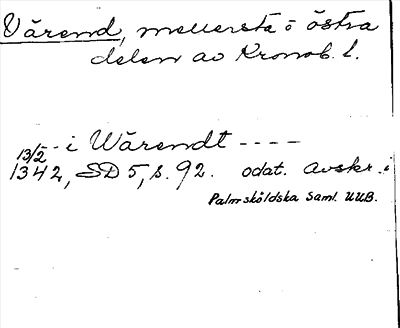 Värend, mellersta o östra
delen av Kronob. l.
13/2 - i Wärendt ----
1342, SD 5, s. 92. odat. avskr. i
Palmsköldska Saml. UUB.